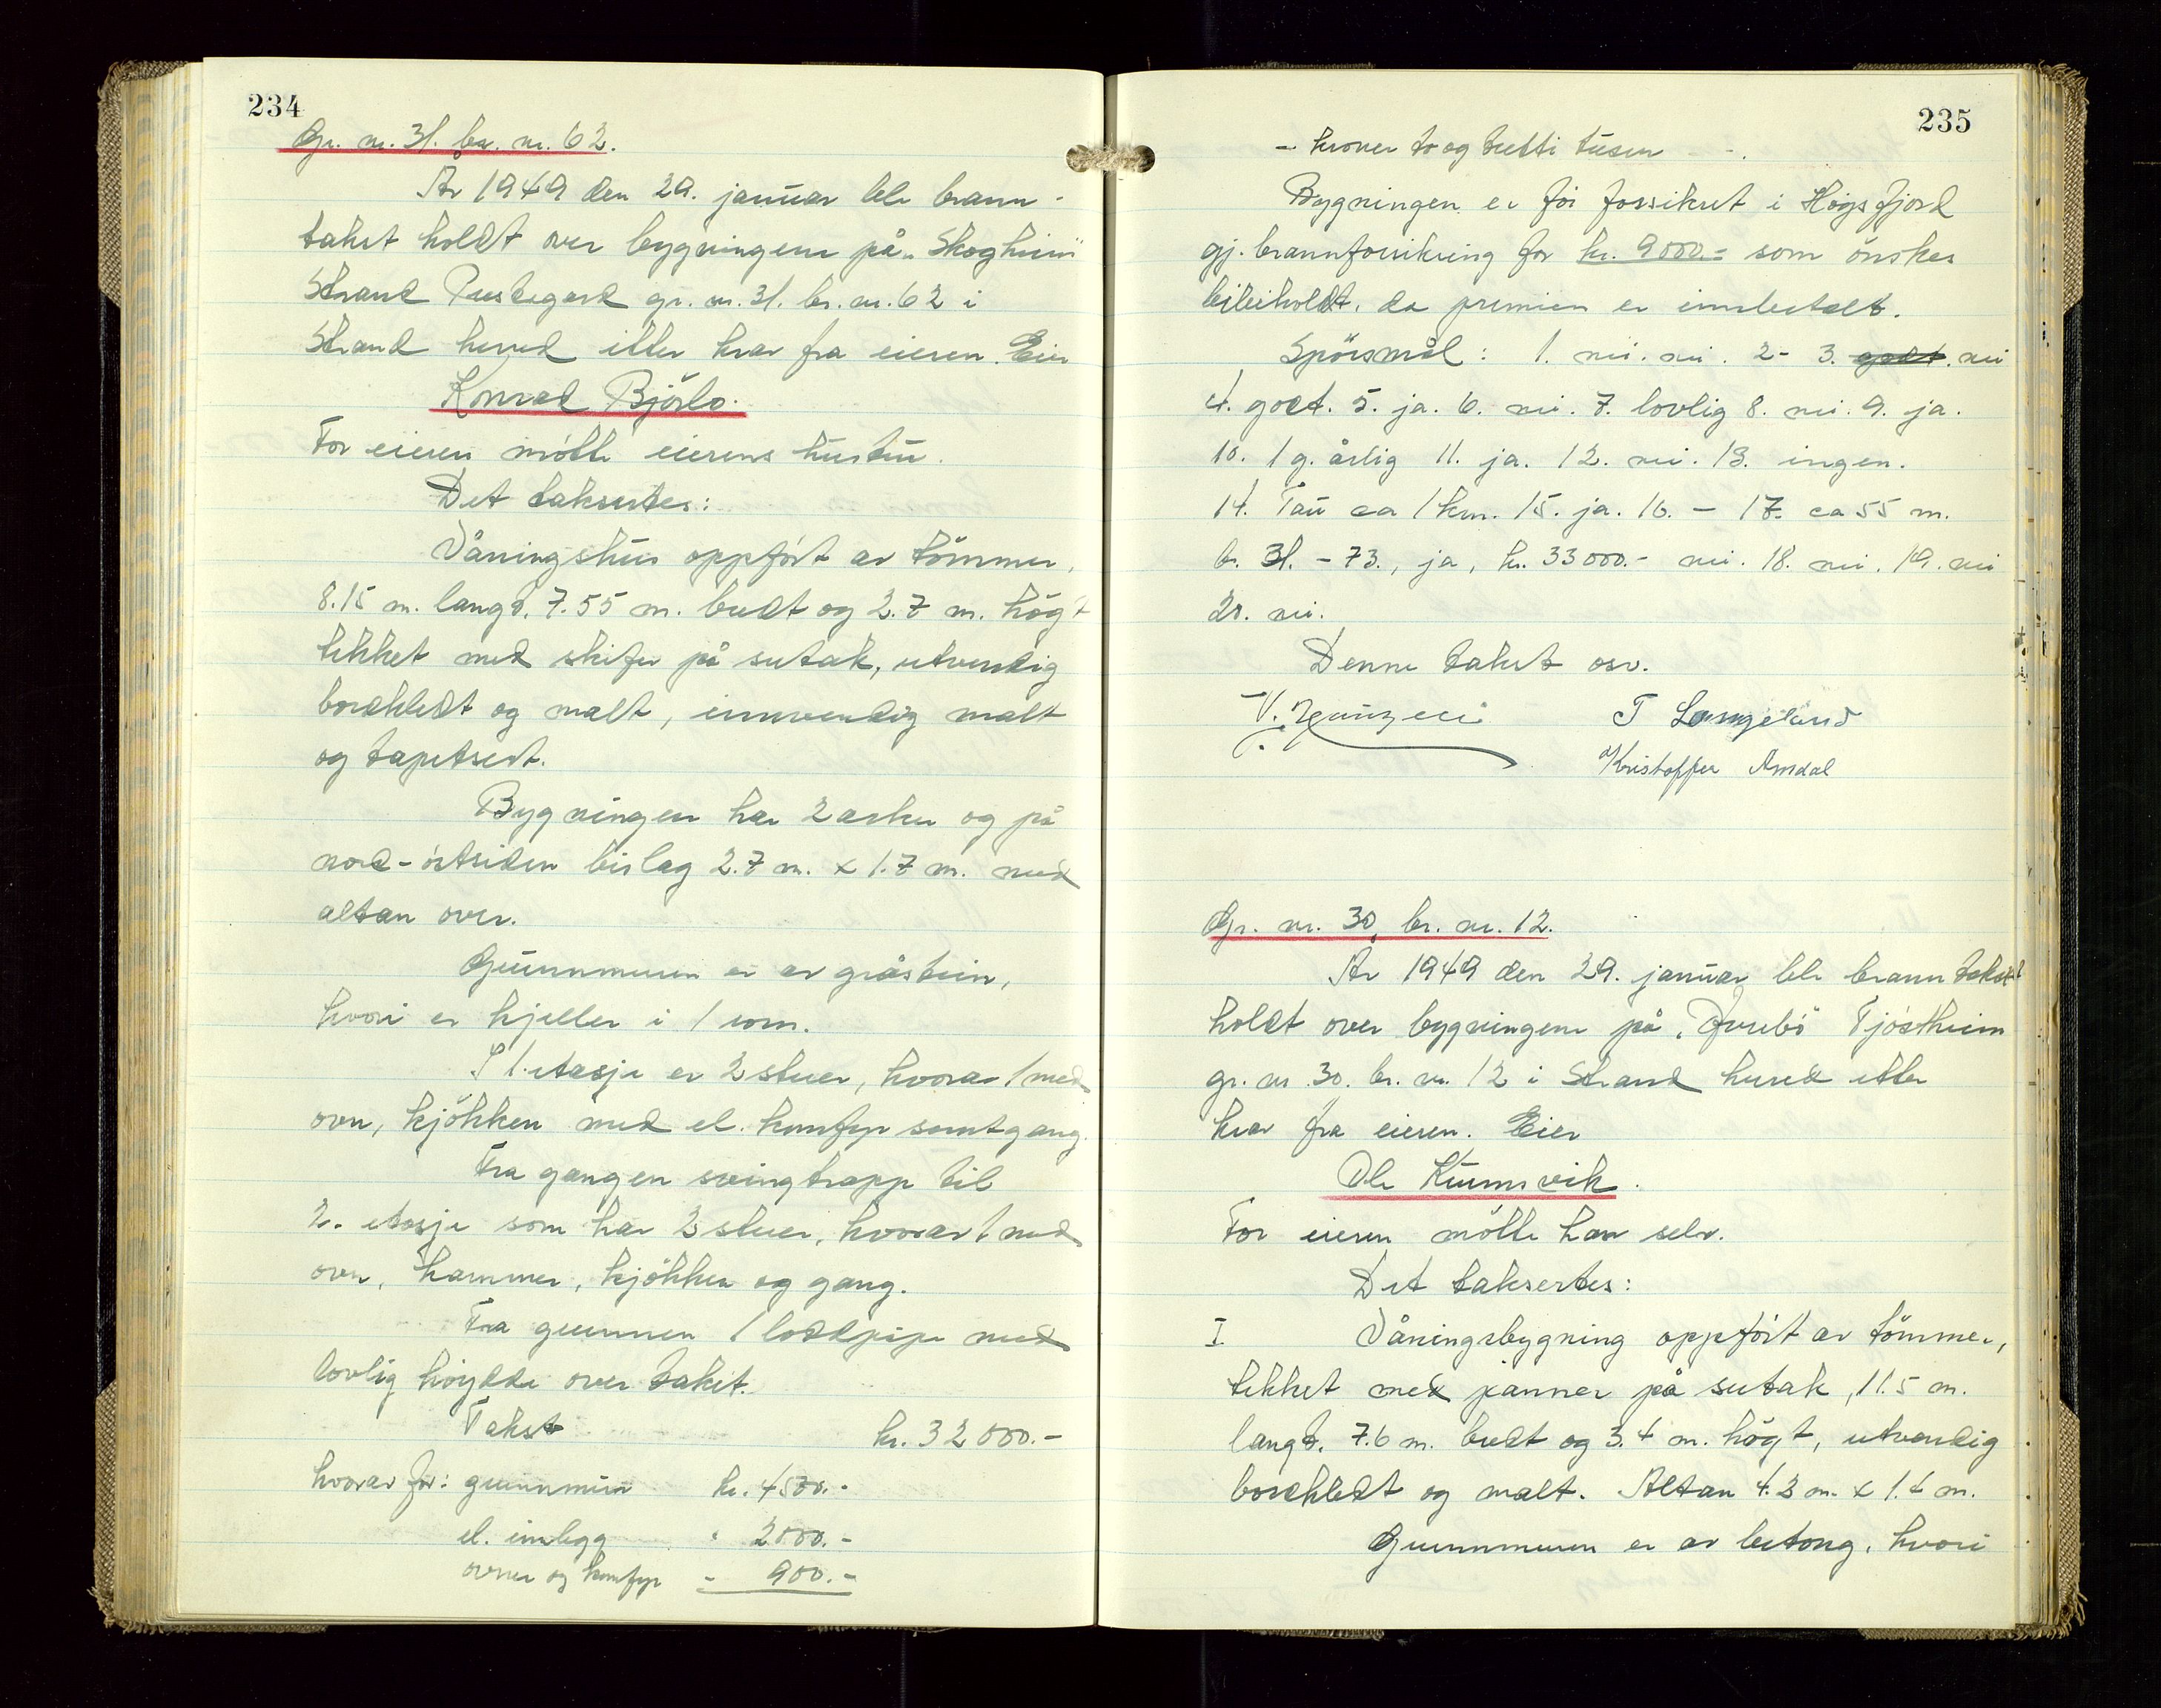 234
Gr. nr. 31. br. nr. 62.
År 1949 den 29. januar ble brann-
takst holdt over bygningene på „Skogheim"
Strand Prestegard gr. nr. 31. br. nr. 62 i
Strand herred etter krav fra eieren. Eier
Konrad Björlo.
For eieren mötte eierens hustru.
Det taksertes:
Våningshus oppfört av tömmer,
8.15 m. langt, 7.55 m. bredt og 2.7 m. högt
tekket med skifer på sutak, utvendig
bordkledt og malt, innvendig malt
og tapetsert.
Bygningen har 2 arker og på
nord-östsiden bislag 2.7 m. x 1.7 m. med
altan over.
Grunnmuren er av gråstein,
hvori er kjeller i 1 rom.
I 1. etasje er 2 stuer, hvorav 1 med
ovn, kjökken med el. komfyr samt gang.
Fra gangen svingtrapp til
2. etasje som har 2 stuer, hvorav 1 med
ovn, kammer, kjökken og gang.
Fra grunnen 1 loddpipe med
lovlig höydde over taket.
Takst kr. 32 000.-
hvorav for: grunnmur kr. 4500.-
el. innlegg " 2000.-
ovner og komfyr - 900.-
235
- kroner to og tretti tusen - - .
Bygningen er för forsikret i Högsfjord
gj. brannforsikring for kr. 9000.- som önskes
bibeholdt, da premien er innbetalt.
Spörsmål: 1. nei. nei. 2- 3. godt. nei
4. godt. 5. ja. 6. nei. 7. lovlig 8. nei. 9. ja.
10. 1 g. årlig 11. ja. 12. nei. 13. ingen.
14. Tau ca 1 km. 15. ja. 16. - 17. ca 55 m.
b. 31. - 73., ja, kr. 33000.- nei. 18. nei. 19. nei
20. nei.
Denne takst osv.
T Langeland
Kristoffer Amdal
Gr. nr. 30, br. nr. 12.
År 1949 den 29. januar ble branntakst
holdt over bygningene på Tjöstheim
gr. nr. 30. br. nr. 12 i Strand herred etter
krav fra eieren. Eier
Ole Kvernevik.
For eieren mötte han selv.
Det taksertes:
I Våningsbygning oppfört av tömmer,
tekket med panner på sutak, 11.5 m.
langt, 7.6 m. bredt og 3.4 m. högt, utvendig
bordkledt og malt. Altan 4.3 m. x 1.4 m.
Grunnmuren er av betong, hvori